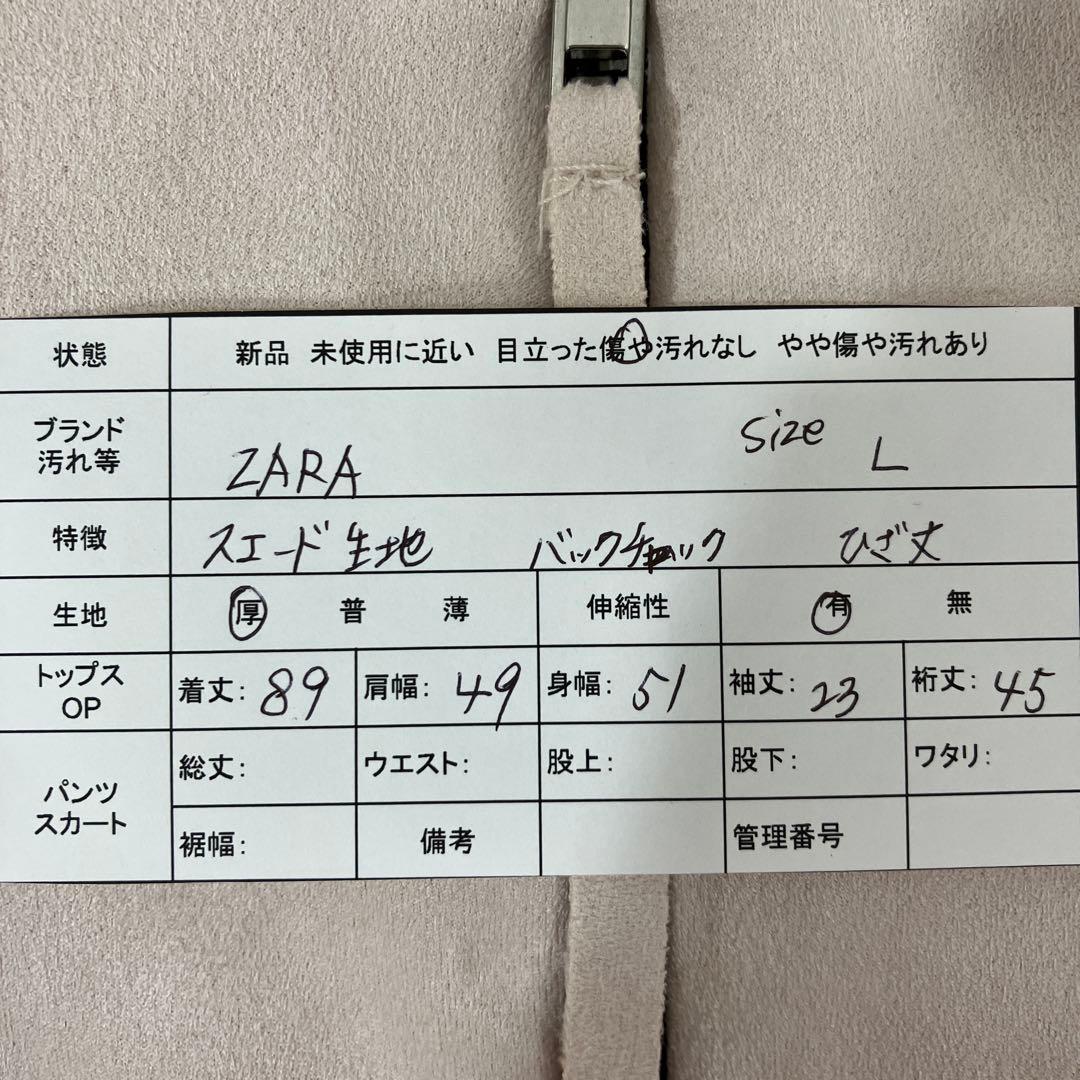 状態 新品 未使用に近い 目立った傷や汚れなし やや傷や汚れあり
ブランド
汚れ等 ZARA size L
特徴 スエード生地 バックチャック ひざ丈
生地 厚 普 薄 伸縮性 有 無
トップス
OP 着丈: 89 肩幅: 49 身幅: 51 袖丈: 23 裄丈: 45
パンツ
スカート 総丈: ウエスト: 股上: 股下: ワタリ:
裾幅: 備考 管理番号